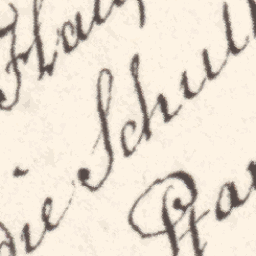 Hau
die Schul
Pfar